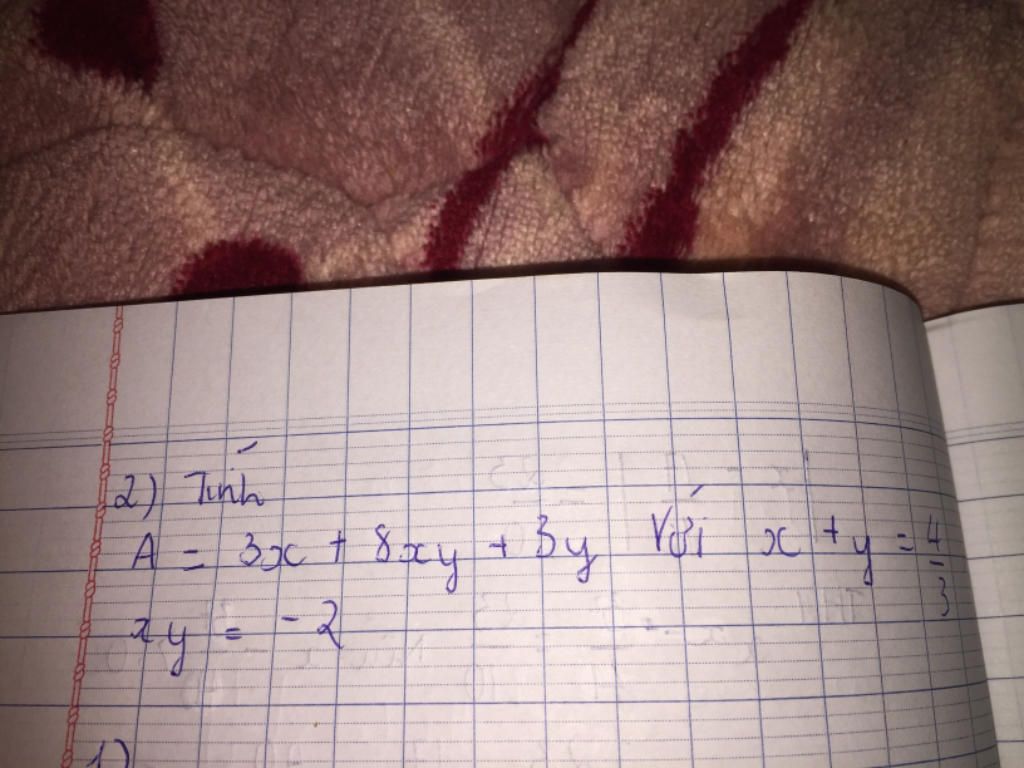 2) Tính
A = 3x + 8xy + 3y Với x + y = 4/3
xy = -2
1)